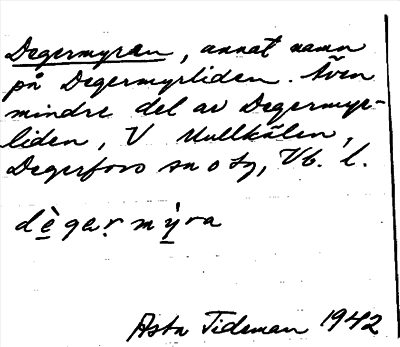 Degermyran, annat namn
på Degermyrliden. Även
mindre del av Degermyr-
liden, V Mullkälen,
Degerfors sn o sg, Vb. l.
dègeṛmỳra
Asta Tideman 1942